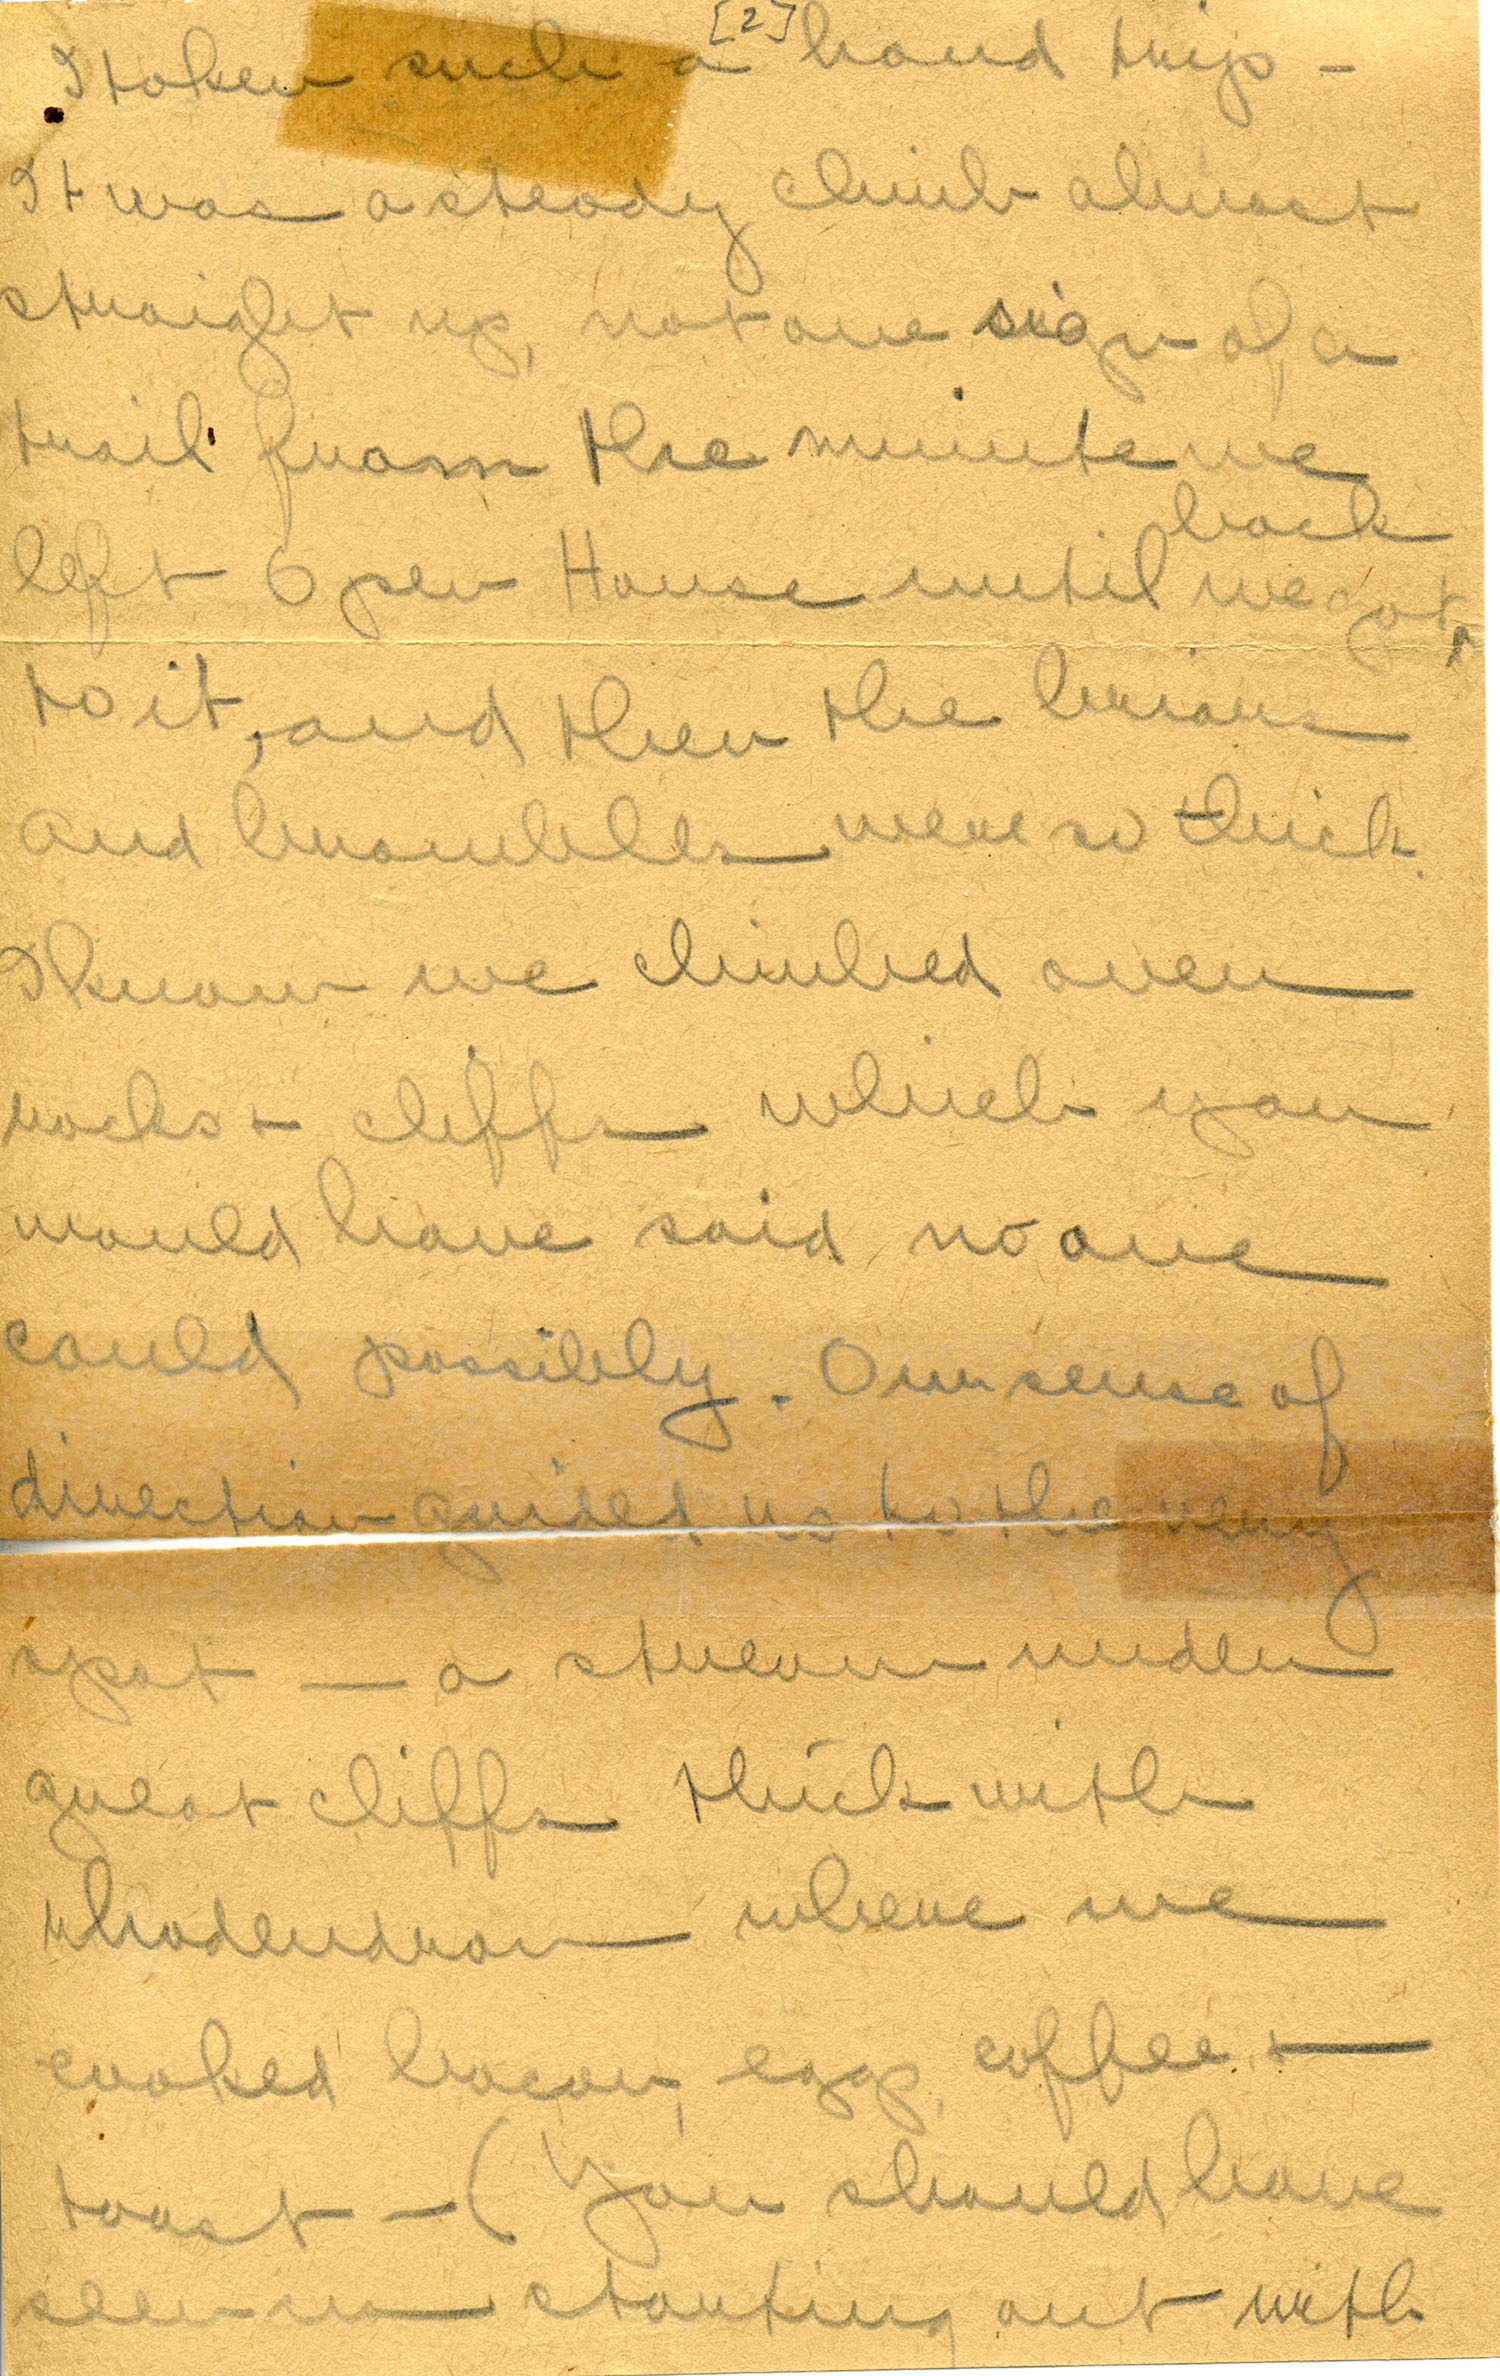 [2]
I taken such a hard trip -
It was a steady climb almost
straight up, not one sign of a
trail from the minute we
back
left Open House until we got ^
to it, and then the briars
and brambles were so thick.
I know we climbed over
rocks + cliffs which you
would have said no one
could possibly. Our sense of
direction guided us to the very
spot — a stream under
great cliffs thick with
rhododendron where we
cooked bacon, egg, coffee +
toast - ( You should have
seen us starting out with